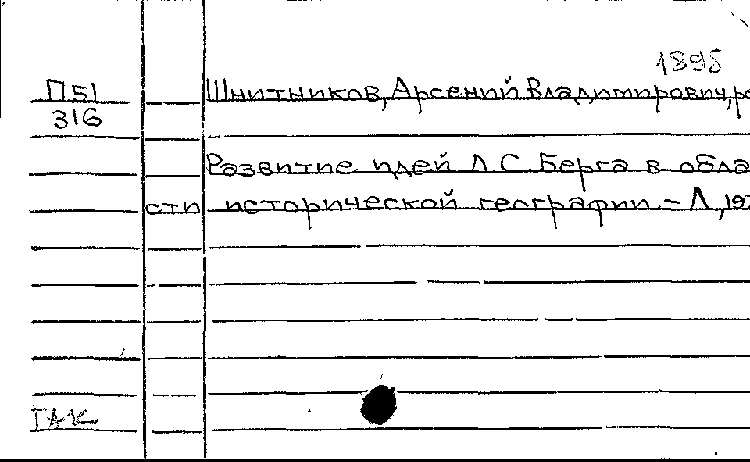 1895
П51 Шнитников, Арсений Владимирович, ро
316
Развитие идей Л.С. Берга в обла
сти исторической географии – Л, 197
ГАК